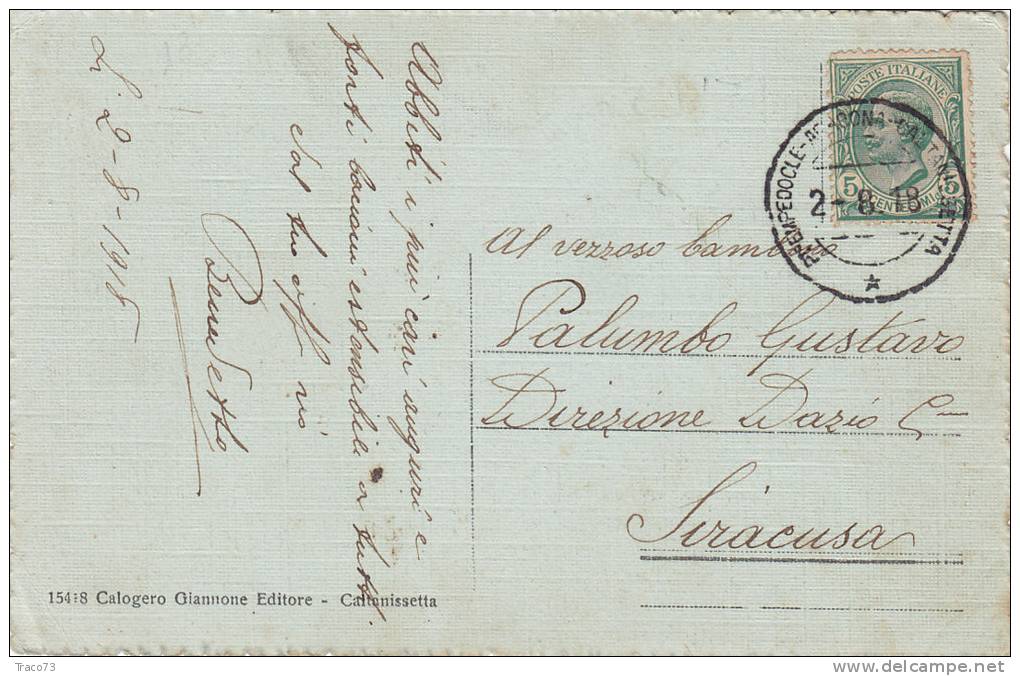 Li 2-8-1918
Abbiti i più cari auguri e
forti bacioni estensibili a tutti.
dal tuo aff
Benedetto
POSTE ITALIANE
5 CENTESIMI 5
Pto EMPEDOCLE-ARAGONA-CALTANISSETTA
2-8.18
Al vezzoso bambino
Palumbo Gustavo
Direzione Dazio
Siracusa
154-8 Calogero Giannone Editore - Caltanissetta
Traco73
www.delcampe.net